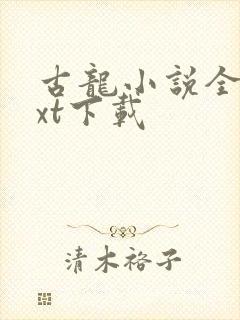 古龍小説全
xt下載
清木裕子